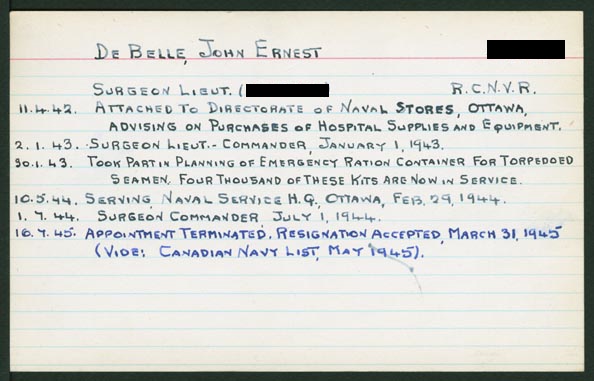 De Belle, John Ernest
Surgeon Lieut. ( ) R.C.N.V.R.
11.4.42. Attached to Directorate of Naval Stores, Ottawa,
advising on Purchases of Hospital Supplies and Equipment.
2.1.43. Surgeon Lieut.-Commander, January 1, 1943.
30.1.43. Took part in Planning of Emergency Ration Container for Torpedoed
Seamen. Four Thousand of These Kits Are Now in Service.
10.5.44. Serving, Naval Service H.Q., Ottawa, Feb. 29, 1944.
1.7.44. Surgeon Commander, July 1, 1944.
16.7.45. Appointment Terminated. Resignation Accepted, March 31, 1945
(Vide: Canadian Navy List, May 1945).